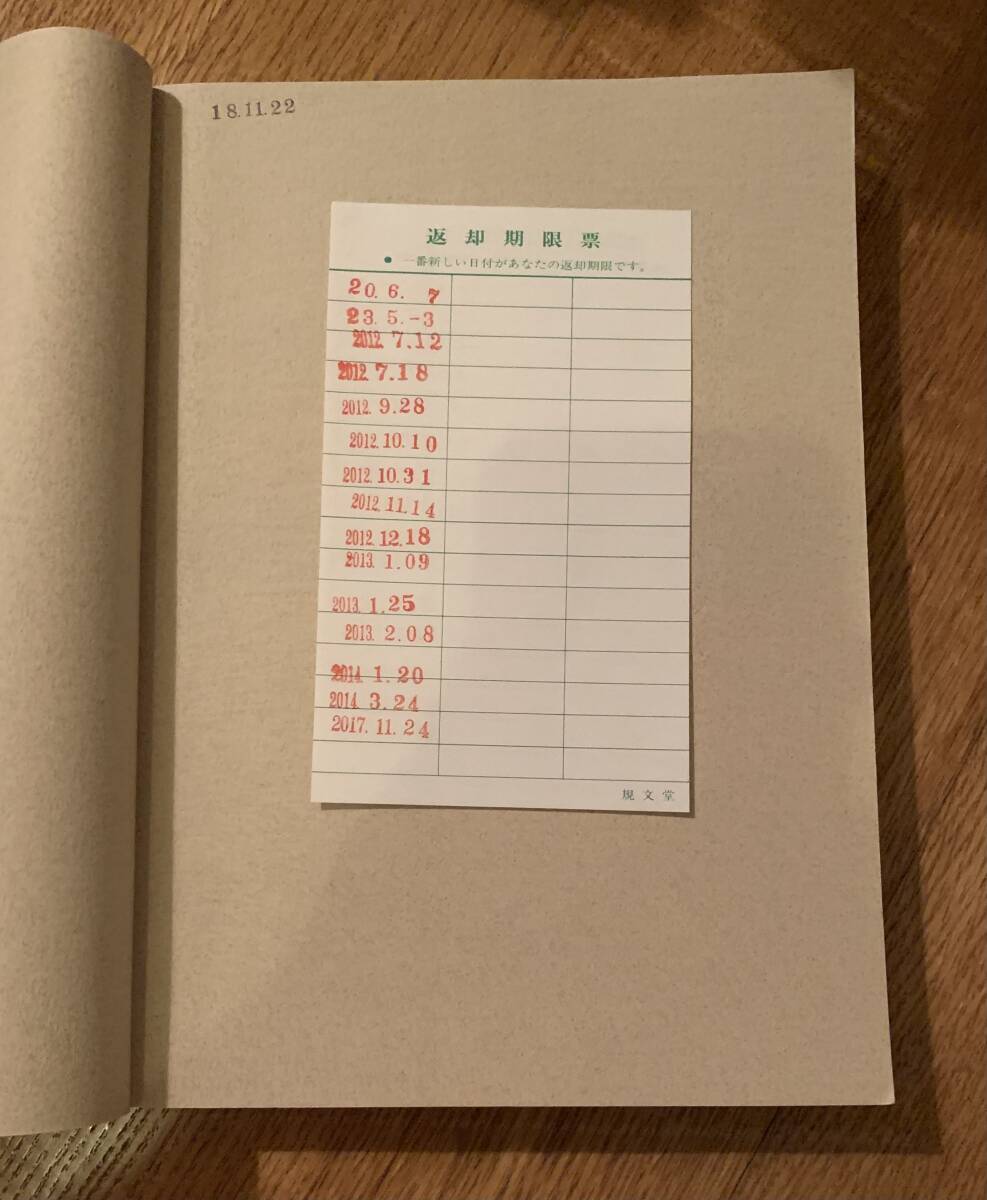 18.11.22
返却期限票
● 一番新しい日付があなたの返却期限です。
20.6. 7
23.5.-3
2012.7.12
2012.7.18
2012.9.28
2012.10.10
2012.10.31
2012.11.14
2012.12.18
2013.1.09
2013.1.25
2013.2.08
2014.1.20
2014.3.24
2017.11.24
規文堂